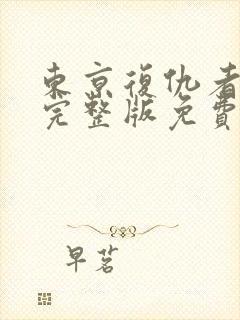 東京復仇者
完整版免費
早茗